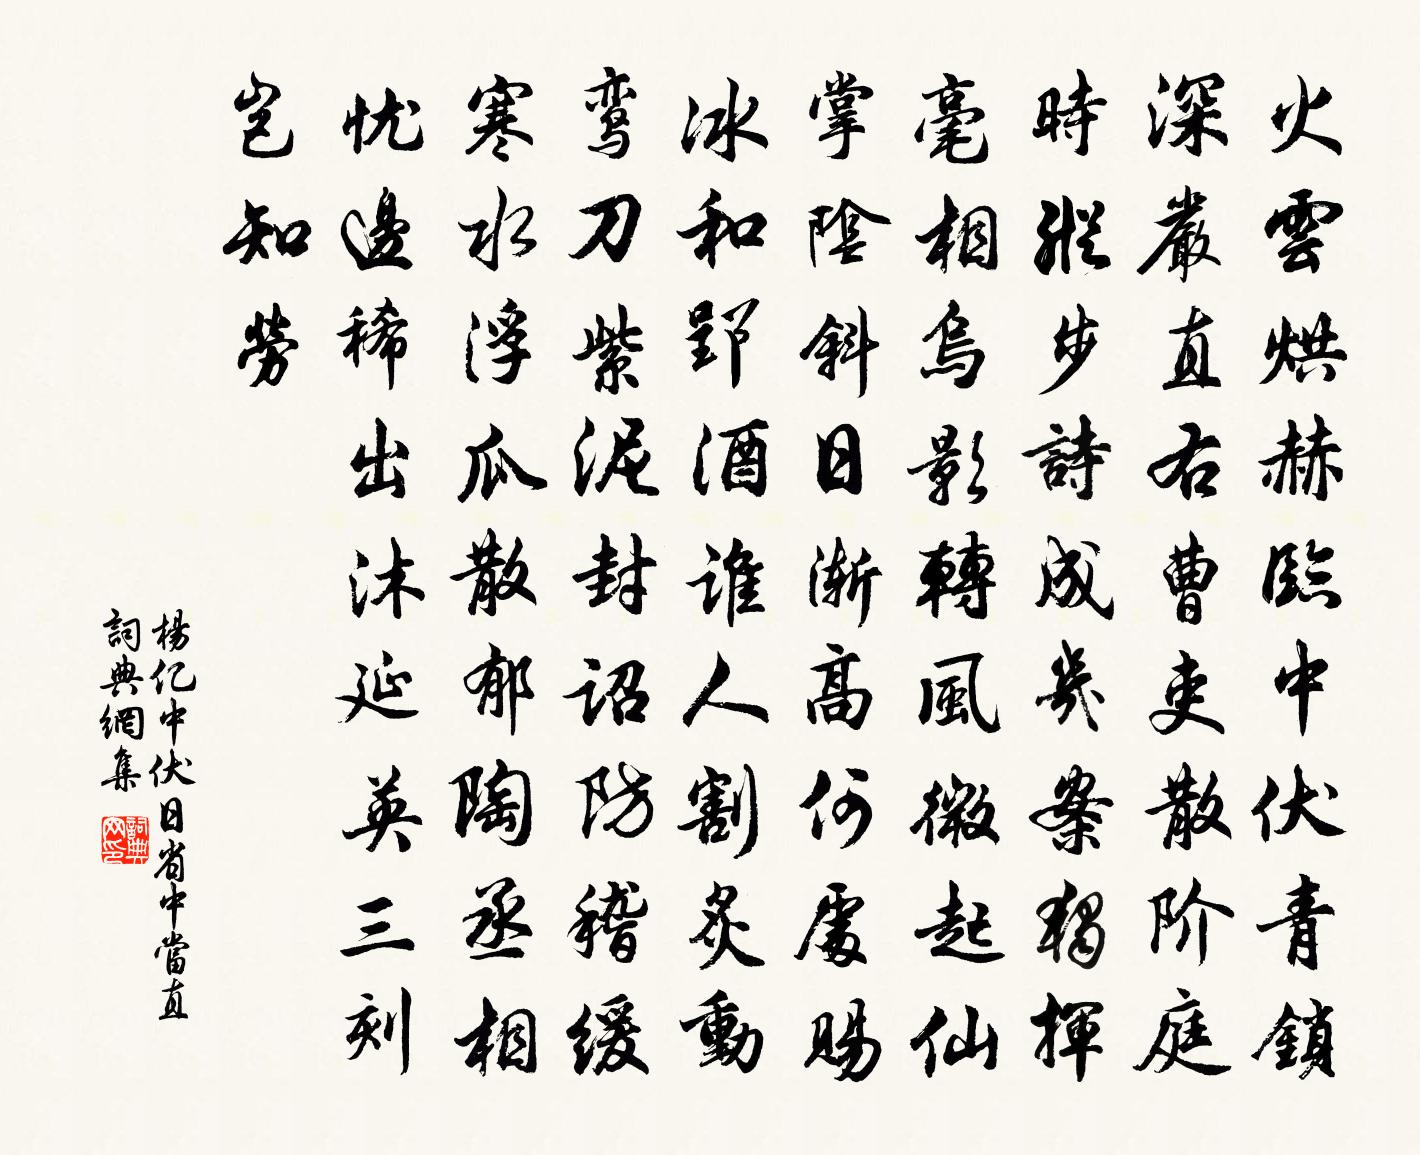 火雲烘赫臨中伏青鎖
深嚴直右曹吏散阶庭
時縱步詩成幾案獨揮
毫相烏影轉風微起仙
掌陰斜日漸高何處賜
冰和郢酒谁人割炙動
鸾刀紫泥封诏防稽缓
寒水浮瓜散郁陶丞相
忧邊稀出沐延英三刻
岂知勞
楊亿中伏日省中當直
詞典網集